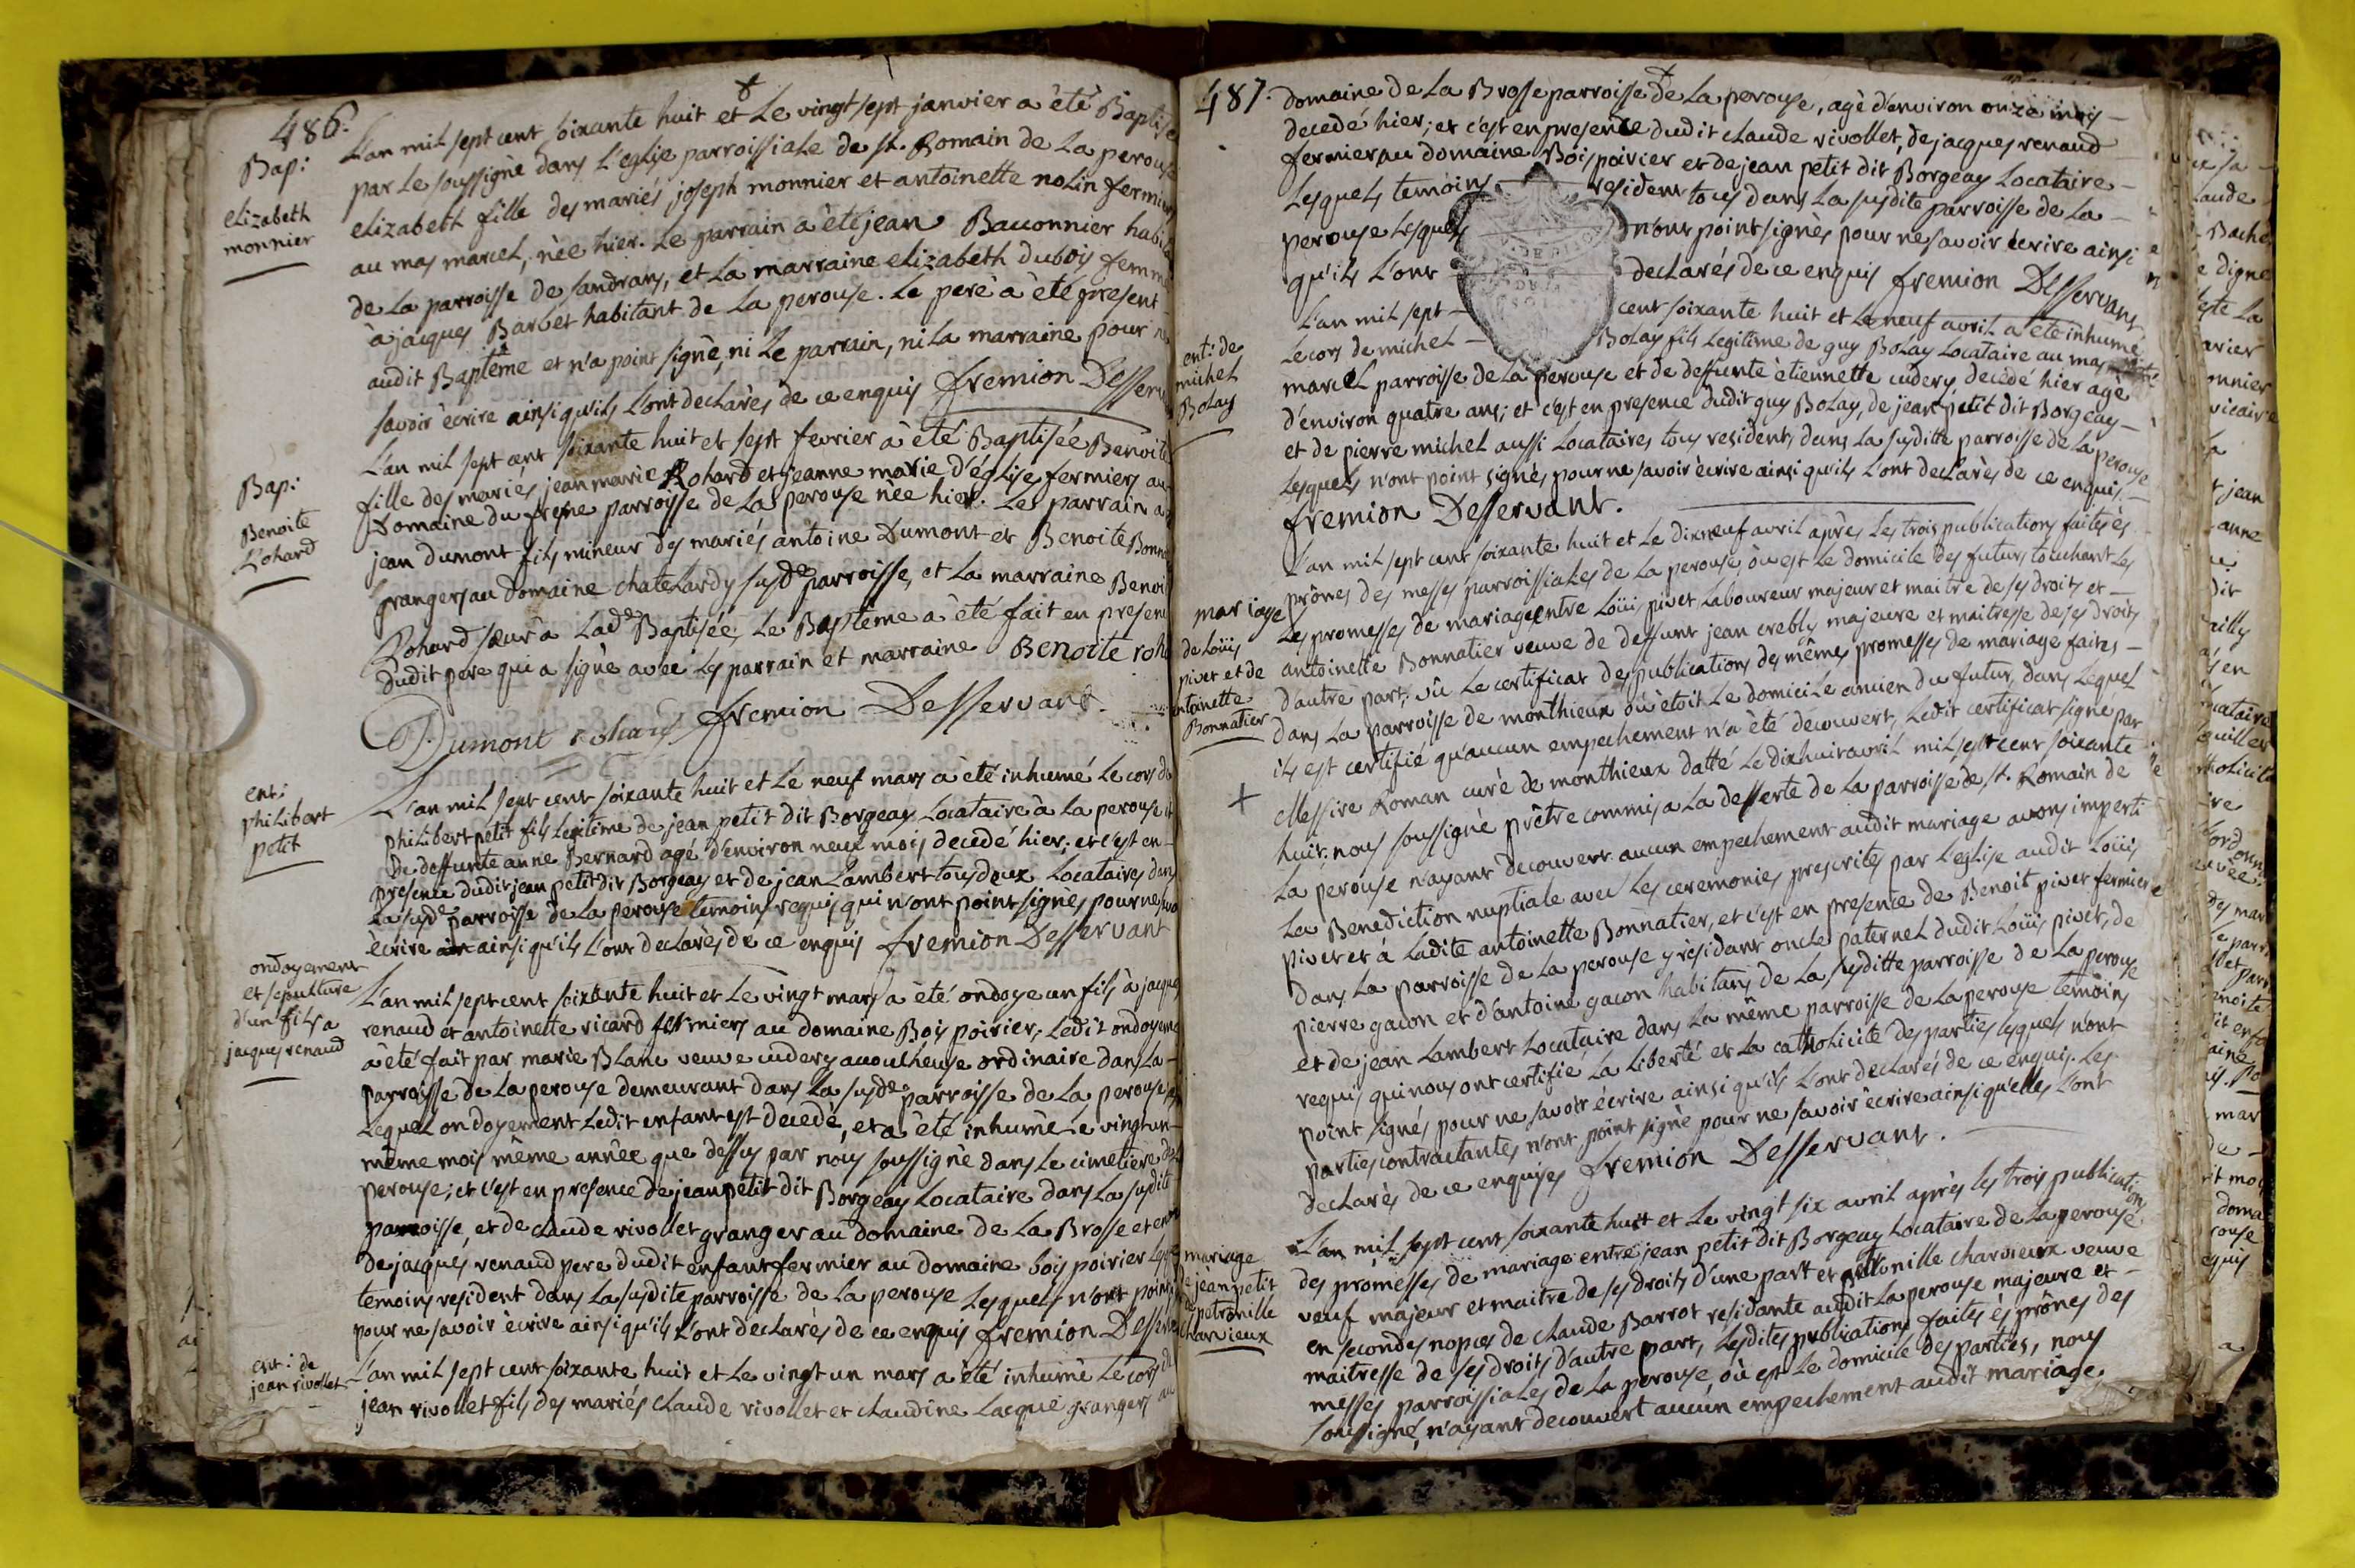 486.
Bap:
elizabeth
monnier
L'an mil sept cent soixante huit et Le vingt sept janvier a èté Baptisé
par Le soussigné dans L'eglise parroissiale de st. Romain de La perouse
elizabeth fille des mariés joseph monnier et antoinette nolin fermiers
au mas marcel, nèe hier. Le parrain a èté jean Bauonnier
de La parroisse de sandrans, et La marraine elizabeth duboys femme
à jacques Barbet habitant de La perouse. Le perè à èté present
audit Baptême et n'a point signè, ni Le parrain, ni La marraine pour ne
savoir ècrire ainsi qu'ils L'ont declarès de ce enquis fremion Desserv
Bap:
Benoite
Rohard
L'an mil sept cent soixante huit et sept fevrier à èté Baptisée Benoite
fille des mariés jean marie Rohard et jeanne marie d'église fermiers au
Domaine du fresne parroisse de La perouse nèe hier. Le parrain a
jean dumont fils mineur des mariés antoine Dumont et Benoite
grangers au domaine chatelardy susde parroisse, et La marraine Benoi
Rohard sœur a Lade Baptisée, Le Baptême a èté fait en presen
dudit pere qui a signè avec Les parrain et marraine Benoite roh
Dumont rohard fremion Desservant.
ent:
philibert
petit
L'an mil sept cent soixante huit et Le neuf mars à èté inhumé Le cors de
philibert petit fils Legitime de jean petit dit Borgeay Locataire à La perouse et
de deffunte anne Bernard agé d'environ neuf mois decedé hier; et c'est en
presence dudit jean petit dit Borgeay et de jean Lambert tous deux Locataires dans
La susde parroisse de La perouse temoins requis qui n'ont point signés pour ne
ècrire ain ainsi qu'ils L'ont declarès de ce enquis fremion Desservant
ondoyement
et sepulture
d'un fils a
jacques renaud
L'an mil sept cent soixante huit et Le vingt mars a èté ondoye un fils à jacques
renaud et antoinette ricard fermiers au domaine Bois poirier; Ledit ondoyeme
à èté fait par marie Blanc veuve cudery accoucheuse ordinaire dans La
parroisse de La perouse demeurant dans La susde parroisse de La perouse
Lequel ondoyement Ledit enfant est decedè, et à èté inhumè Le vingt un
même mois même annèe que dessus par nous soussignè dans Le cimetiere de
perouse; et c'est en presence de jean petit dit Borgeay Locataire dans La sudite
parroisse, et de claude rivollet granger au domaine de La Brosse et en
de jacques renaud pere dudit enfant fermier au domaine bois poirier
temoins resident dans La susdite parroisse de La perouse Lesquels n'ont point
pour ne savoir ècrire ainsi qu'ils L'ont declarès de ce enquis fremion Desser
ent: de
jean rivollet
L'an mil sept cent soixante huit et Le vingt un mars a èté inhumè Le cors de
jean rivollet fils des mariés claude rivollet et claudine Lacque grangers au
487.
domaine de La Brosse parroisse de La perouse, agè d'environ onze mois
decedé hier; et c'est en presence dudit claude rivollet, de jacques renaud
fermier au domaine Bois poirier et de jean petit dit Borgeay Locataire
Lesquels temoins resident tous dans La susdite parroisse de La
perouse Lesquels n'ont point signès pour ne savoir ècrire ainsi
qu'ils L'ont declarés de ce enquis fremion Desservant
ent: de
michel
Bolay
L'an mil sept cent soixante huit et Le neuf avril a èté inhumè
Le cors de michel Bolay fils Legitime de guy Bolay Locataire au mas
marcel parroisse de La perouse et de deffunte ètiennette cudery decedé hier agè
d'environ quatre ans; et c'est en presence dudit guy Bolay, de jean petit dit Borgeay
et de pierre michel aussi Locataires tous residents dans La susditte parroisse de La perouse
Lesquels n'ont point signés pour ne savoir ècrire ainsi qu'ils L'ont declarès de ce enquis.
fremion Desservant.
mariage
de Loüis
pivet et de
antoinette
Bonnatier
L'an mil sept cent soixante huit et Le dixneuf avril après Les trois publications faites ès
prônes des messes parroissiales de La perouse, òu est Le domicile des futurs touchant Les
Les promesses de mariage entre Loüis pivet Laboureur majeur et maitre de ses droits et
antoinette Bonnatier veuve de deffunt jean crebly majeure et maitresse de ses droits
d'autre part; vû Le certificat des publications des mêmes promesses de mariage faites
dans La parroisse de monthieux où ètoit Le domicile ancien du futur, dans Lequel
ils est certifié qu'aucun empechement n'a èté decouvert, Ledit certificat signé par
Messire Roman curé de monthieux datté Le dixhuit avril mil sept cent soixante
+
huit; nous soussigné prêtre commis a La desserte de La parroisse de st. Romain de
La perouse n'ayant decouvert aucun empechement audit mariage avons imparti
La Benediction nuptiale avec Les ceremonies prescrites par L'eglise audit Loüis
pivet et à Ladite antoinette Bonnatier, et c'est en presence de Benoit pivet fermier
dans La parroisse de La perouse y residant oncle paternel dudit Loüis pivet, de
pierre gacon et d'antoine gacon habitans de La susditte parroisse de La perouse
et de jean Lambert Locataire dans La même parroisse de La perouse temoins
requis qui nous ont certifié La Liberté et La catholicité des parties Lesquels n'ont
point signés pour ne savoir écrire ainsi qu'ils L'ont declarés de ce enquis. Les
parties contractantes n'ont point signè pour ne savoir ècrire ainsi qu'elles L'ont
declarès de ce enquises fremion Desservant.
mariage
de jean petit
petronille
charvieux
L'an mil sept cent soixante huit et Le vingt six avril après Les trois publications
des promesses de mariage entre jean petit dit Borgeay Locataire de La perouse
veuf majeur et maitre de ses droits d'une part et petronille charvieux veuve
en secondes nopces de claude Barrot residante audit La perouse majeure et
maitresse de ses droits d'autre part, Lesdites publications faites ès prônes des
messes parroissiales de La perouse, où est Le domicile des parties, nous
soussigné, n'ayant decouvert aucun empechement audit mariage.